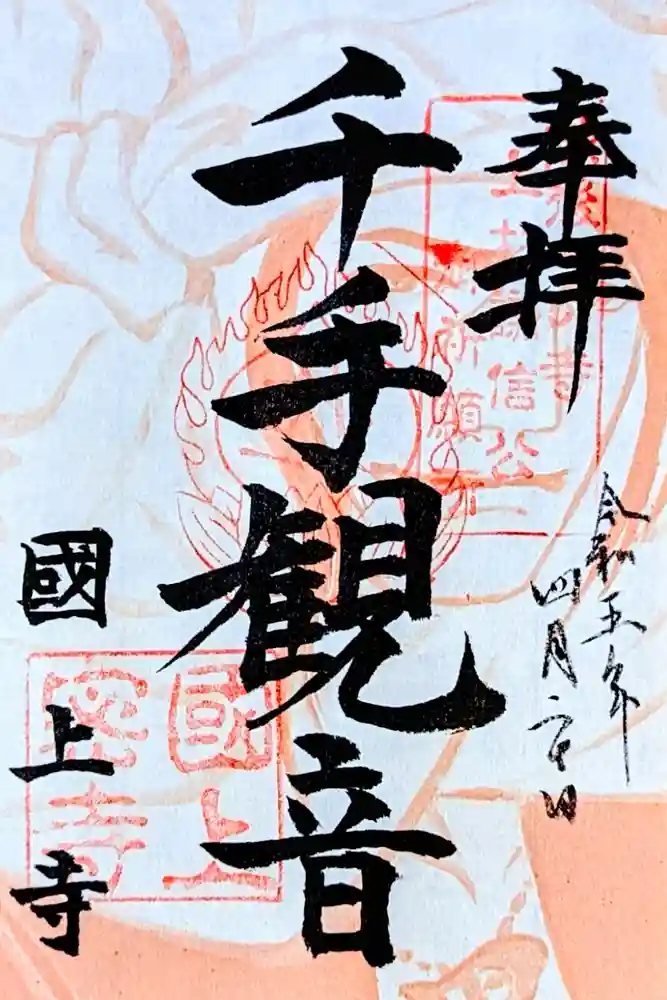 奉拝
令和五年
四月二十日
千手観音
國上寺
信公
祈願
國上
寺